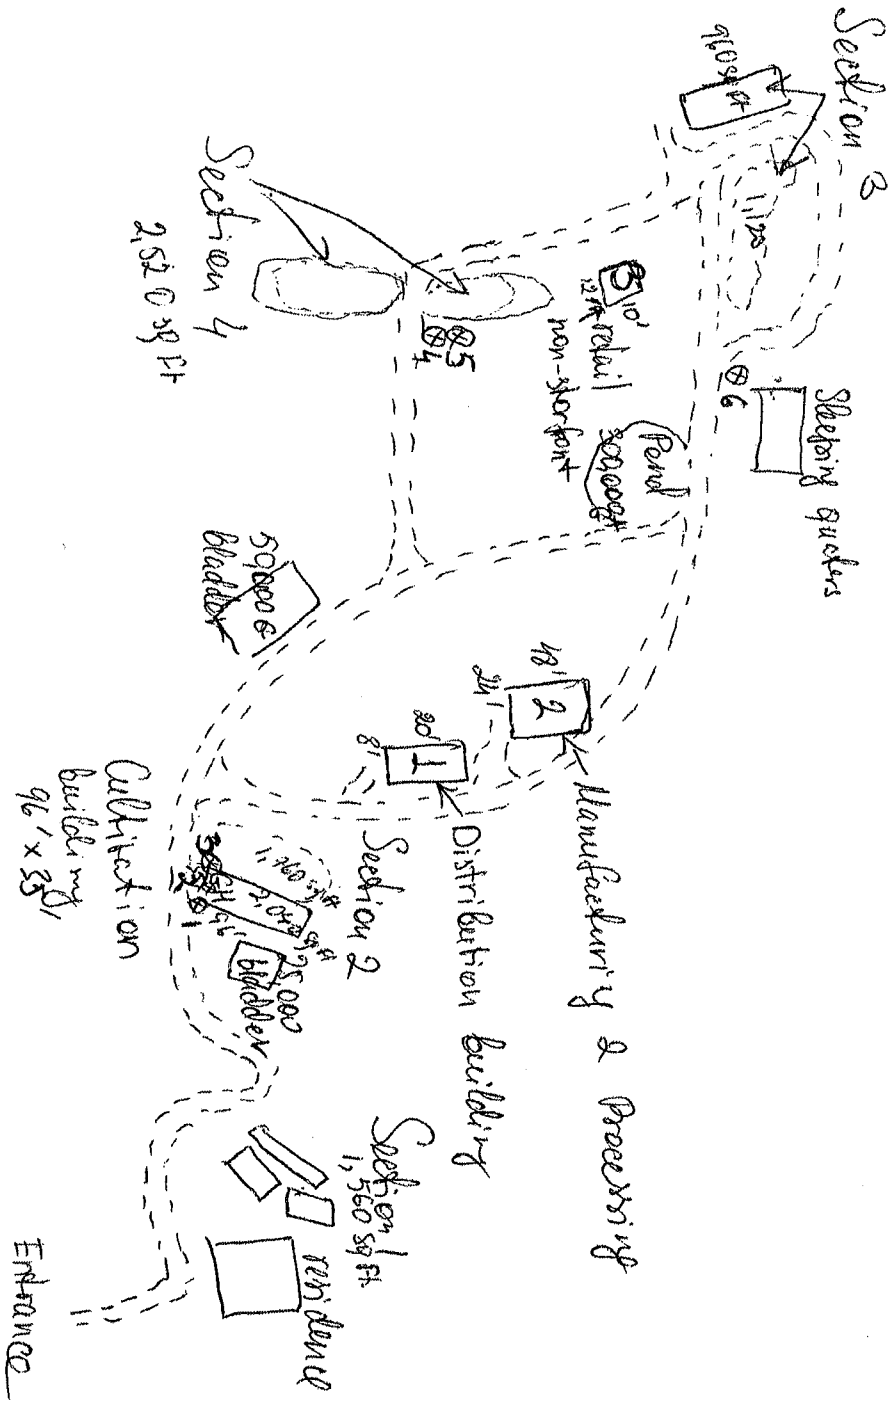 Section 3
960 sq ft
1,120
Sleeping quaters
⊗6
3
10'
12ft retail
non-storfont
Pond
300,000G
⊗5
⊗4
Section 4
2,520 sq ft
50,000G
bladder
48'
24'
2
Manufacturing & Processing
20'
8'
1
Distribution building
Section 2
1,760 sq ft
2,040 sq ft
96'
25,000
bladder
Cultivation
building
96' x 35'
Section 1
1,560 sq ft
residence
Entrance